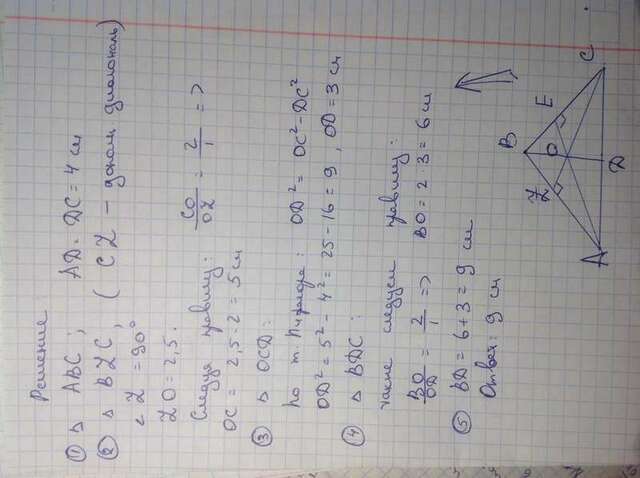 Решение
① △ ABC, AD = DC = 4 см
② △ BZC, ( CZ – доном диагональ)
∠ Z = 90°
ZO = 2,5.
Следуя правилу: CO/OZ = 2/1 =>
OC = 2,5 · 2 = 5 см
③ △ OCD:
по т. Пифагора: OD² = OC² – DC²
OD² = 5² – 4² = 25 – 16 = 9, OD = 3 см
④ △ BDC:
также следуем правилу:
BO/OD = 2/1 => BO = 2 · 3 = 6 см
⑤ BD = 6 + 3 = 9 см
Ответ: 9 см
B
Z
O
E
A
D
C